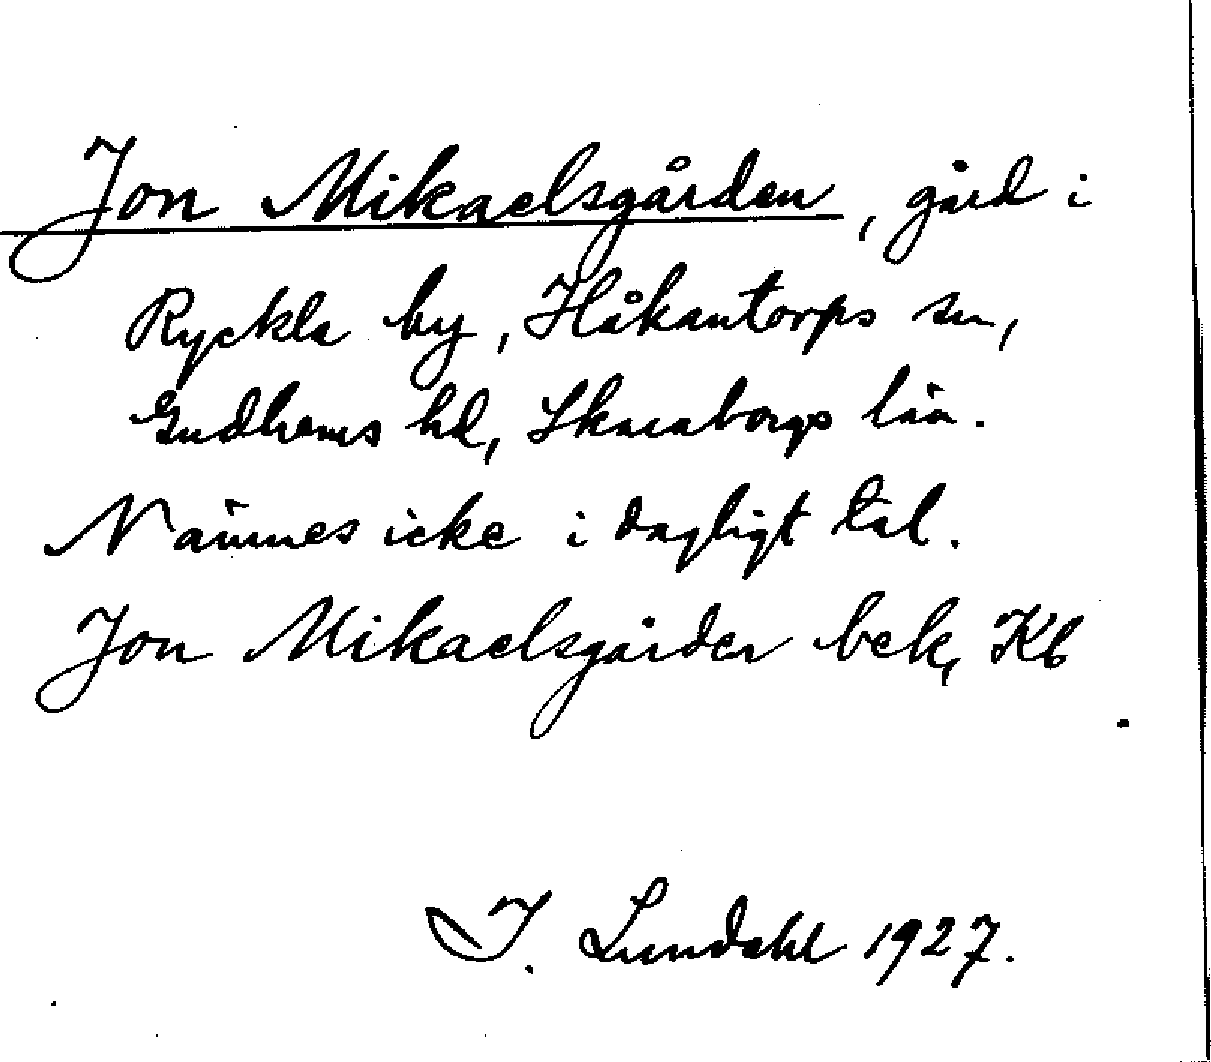 Jon Mikaelsgården, gård i
Ryckla by, Håkantorps sn,
Gudhems hd, Skaraborgs län.
Nämnes icke i dagligt tal.
Jon Mikaelsgården bek, Kb
I. Lundahl 1927.